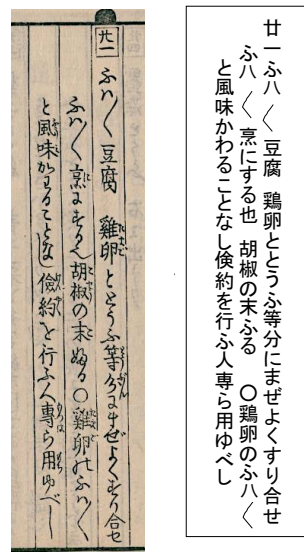 廿一ふハ〱豆腐 鶏卵ととうふ等分にまぜよくすり合せ
ふハ〱烹にする也 胡椒の末ふる 〇鶏卵のふハ〱
と風味かわることなし倹約を行ふ人専ら用ゆべし
廿一 ふハ〱豆腐 雞卵ととうふ等分にまぜよくすり合せ
ふハ〱烹にする也 胡椒の末ふる 〇雞卵のふハ〱
と風味かわることなし儉約を行ふ人専ら用ゆべし